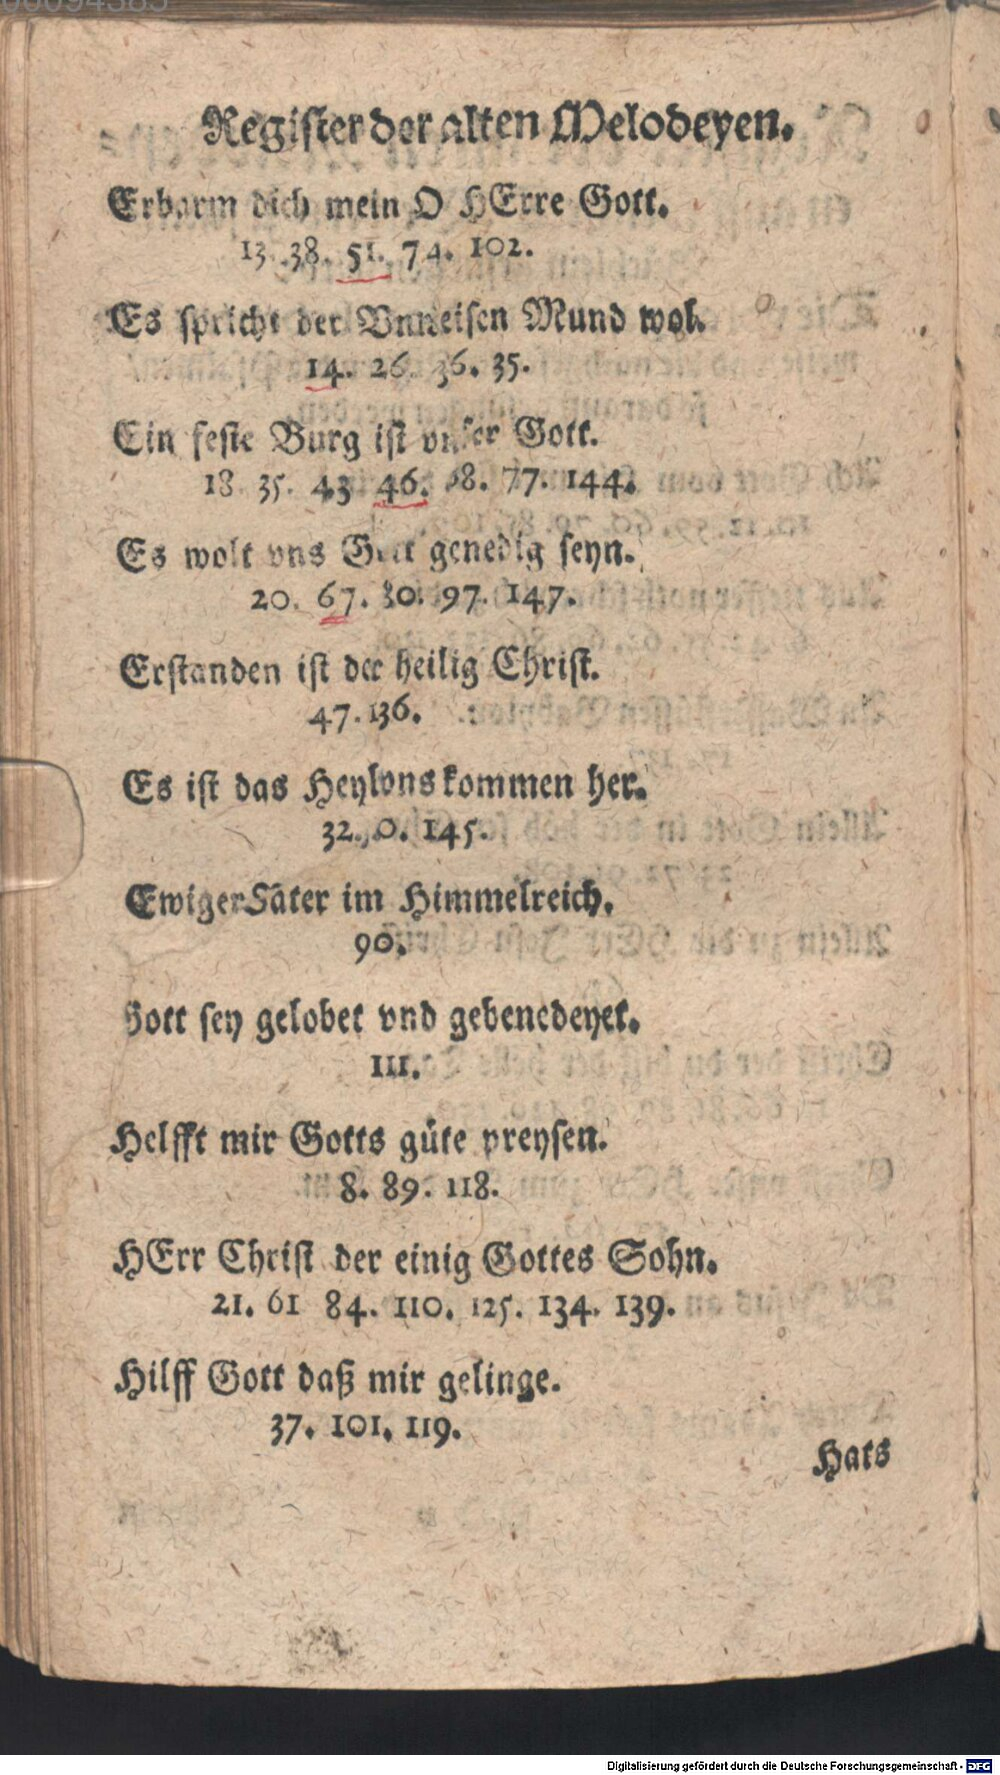 00094385
Register der alten Melodeyen.
Erbarm dich mein O HErre Gott.
13. 38. 51. 74. 102.
Es spricht der Vnweisen Mund wol.
14. 26. 36. 35.
Ein feste Burg ist vnser Gott.
18. 35. 43 46. 77. 144.
Es wolt vns Gott genedig seyn.
20. 67. 80. 97. 147.
Erstanden ist der heilig Christ.
47. 136.
Es ist das Heyl vns kommen her.
32. 145.
Ewiger Vater im Himmelreich.
90.
Gott sey gelobet vnd gebenedeyet.
111.
Helfft mir Gotts güte preysen.
8. 89. 118.
HErr Christ der einig Gottes Sohn.
21. 61 84. 110. 125. 134. 139.
Hilff Gott daß mir gelinge.
37. 101. 119.
Hats
Digitalisierung gefördert durch die Deutsche Forschungsgemeinschaft - DFG